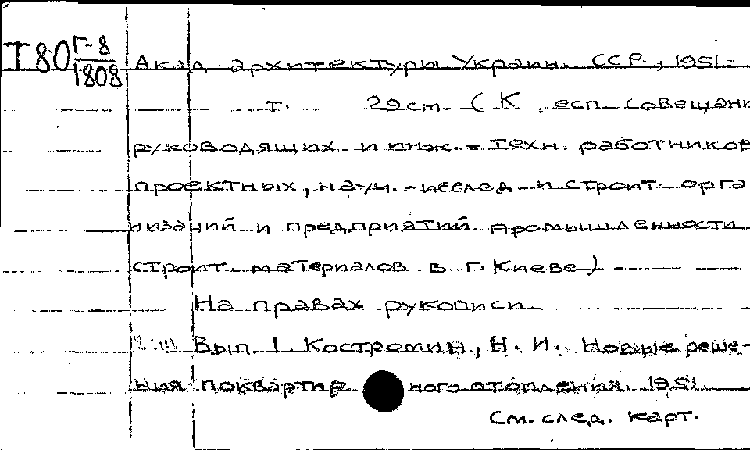 Т80 Г-8/1808 Акад архитектуры Украин. ССР, 1951-
т. 29см. (К респ. совещани
руководящих и инж.-техн. работников
проектных, науч.-исслед. и строит. орга
низаций и предприятий промышленности
строит. материалов в г. Киеве)
На правах рукописи
Вып. 1. Костромин, Н. И. Новые реше-
ния поквартирного отопления. 1951
См. след. карт.